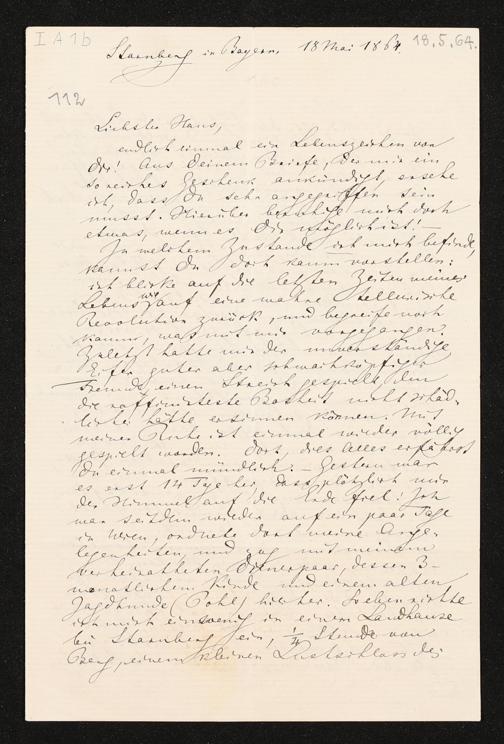 I A 1b
18.5.64.
Starnberg in Bayern. 18 Mai 1864.
112
Liebster Hans,
endlich einmal ein Lebenszeichen von
Dir! Aus Deinem Briefe, der mir ein
so reiches Geschenk ankündigt, ersehe
ich, dass Du sehr angegriffen sein
musst. Hierüber beruhige mich doch
etwas, wenn es Dir möglich ist! –
In welchem Zustande ich mich befinde,
kannst Du Dir kaum vorstellen:
ich blicke auf die letzten Zeiten meines
Lebens wie auf eine wahre tellurische
Revolution zurück, und begreife noch
kaum, was mit mir vorgegangen.
Zuletzt hatte mir der unverständige
Eifer guter aber schwachköpfiger
Freunde einen Streich gespielt, den
die raffinirteste Bosheit nicht schäd-
licher hätte ersinnen können. Mit
meiner Ruhe ist einmal wieder völlig
gespielt worden. Doch, dies Alles erfährst
Du einmal mündlich. – Gestern war
es erst 14 Tage her, dass plötzlich mir
der Himmel auf die Erde fiel: Ich
war seitdem wieder auf ein paar Tage
in Wien, ordnete dort meine Ange-
legenheiten, und zog mit meinem
verheiratheten Dienerpaar, dessen 3-
monatlichem Kinde und einem alten
Jagdhunde (Pohl) hierher. Soeben richte
ich mich ein wenig in einem Landhause
bei Starnberg ein, 1/4 Stunde von
Berg, einem kleinen Lustschloss des